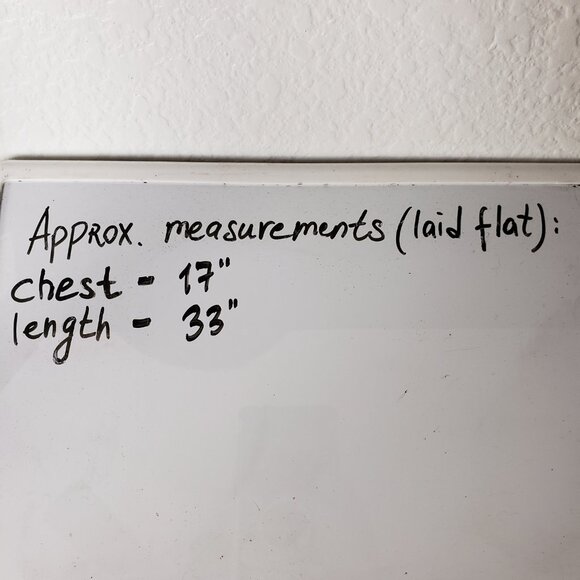 Approx. measurements (laid flat):
chest - 17"
length - 33"